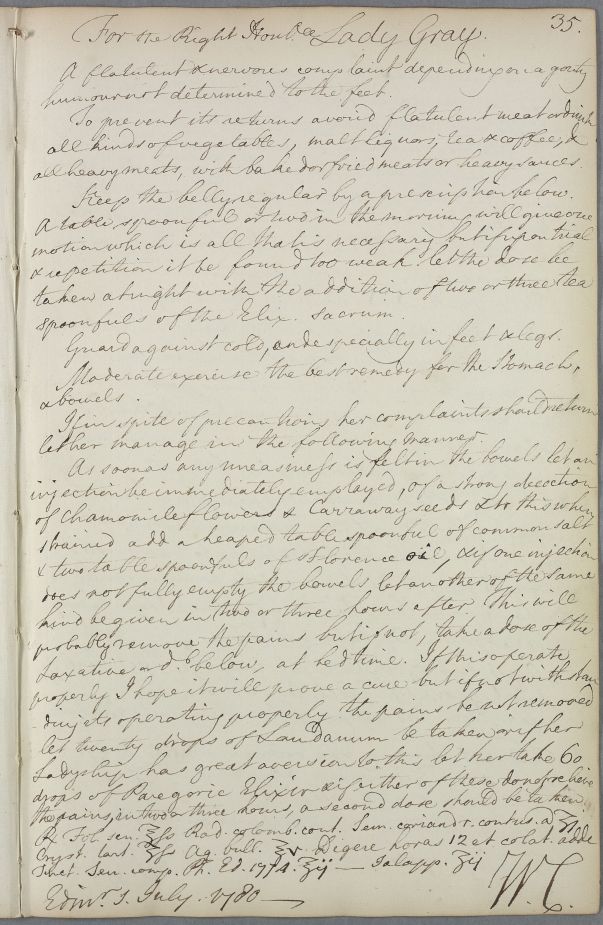 35.
For the Right Honble Lady Gray.
A flatulent & nervous complaint depending on a gouty
humour not determined to the feet.
To prevent its returns avoid flatulent meat or drink
all kinds of vegetables, malt liquors, tea & coffee, &
all heavy meats, with baked or fried meats or heavy sauces.
Keep the belly regular by a prescription below.
A table spoonful or two in the morning will give one
motion which is all that is necessary but if upon trial
& repetition it be found too weak let the dose be
taken at night with the addition of two or three tea
spoonfuls of the Elix. sacrum.
Guard against cold, and especially in feet & legs.
Moderate exercise the best remedy for the Stomach,
& bowels.
If in spite of precautions her complaints should return
let her manage in the following manner.
As soon as any uneasiness is felt in the bowels let an
injection be immediately employed, of a strong decoction
of Chamomile flowers & Carraway seeds & to this when
strained add a heaped table spoonful of common salt
& two table spoonfuls of Florence oil, & if one injection
does not fully empty the bowels let another of the same
kind be given in two or three hours after. This will
probably remove the pains but if not, take a dose of the
Laxative ord. below, at bed time. If this operate
properly I hope it will prove a cure but if notwithstan
-ding its operating properly the pains be not removed
let twenty drops of Laudanum be taken or if her
Ladyship has great aversion to this let her take 60
drops of Paregoric Elixir & if either of these do not relieve
the pains, in two or three hours, a second dose should be taken.
℞ Fol sen. ℥ſs Rad. colomb. cont. Sem. coriandr. contus. a ʒi
Cryst. tart. ℥ſs Aq. bull. ℥v. Digere horas 12 et colat. adde
Tinct. Sen. comp. Ph. Ed. 1774. ℥ij — Jalapp. ʒij
Edinr. 1 July. 1780 — W.C.